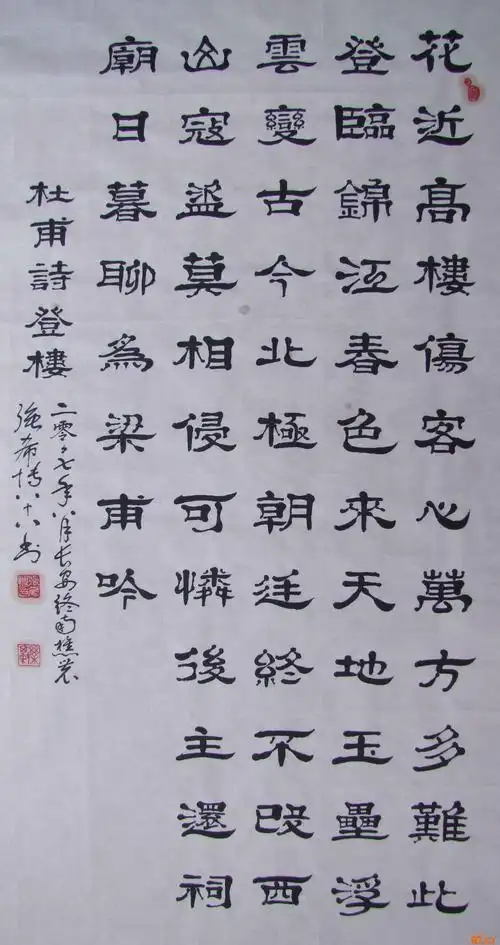 花近高樓傷客心萬方多難此
登臨錦江春色來天地玉壘浮
雲變古今北極朝廷終不改西
山寇盜莫相侵可憐後主還祠
廟日暮聊為梁甫吟
杜甫詩登樓
二零零七年八月長安終南樵農
強希博八十八書